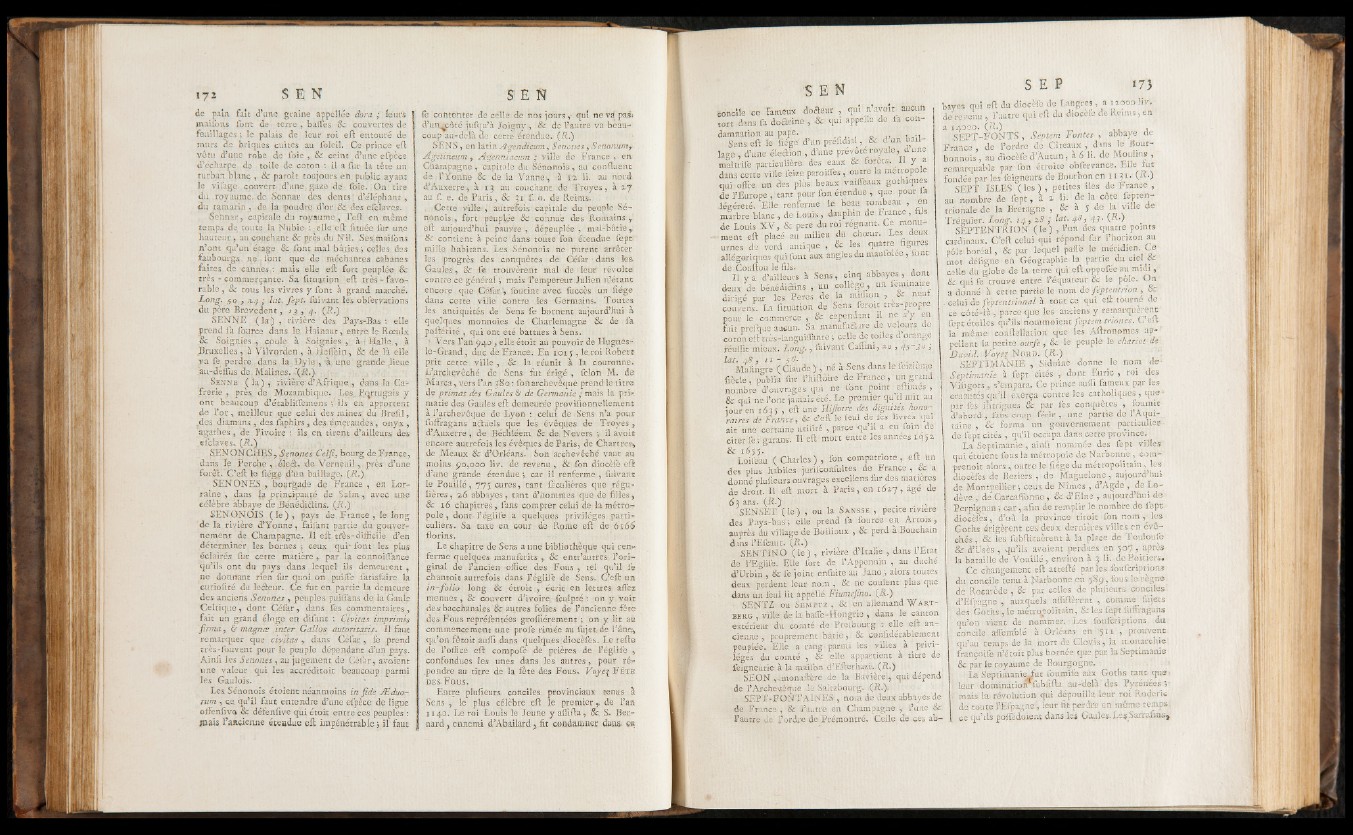 172 SEN
de pain fait d'une graine appellée dora ; leurs
maisons sont de terre, basses & couvertes de
feuillages ; le palais de leur roi est entouré de
murs de briques cuites au soleil. Ce prince est
vêtu d'une robe de soie, & ceint d'une espèce
d'écharpe de toile de coton : il a sur la tête un
turban blanc, & paroît toujours en public ayant
le visage couvert d'une gaze de soie. On tire
du royaume de Sennar des dents d'éléphans,
du tamarin, de la poudre d'or & des esclaves.
Sennar, capitale du royaume, l'est en même
temps de toute la Nubie : elle est située sur une
hauteur, au couchant & près du Nil. Ses maisons
n'ont qu'un étage & sont mal bâties ; celles des
fauxbourgs ne sont que de méchantes cabanes
faites de cannes : mais elle est fort peuplée &
très-commerçante. Sa situation est très-favo-
rable, & tous les vivres y sont à grand marché.
Long. 50, 24 ; lat. sept. suivant les observations
du père Brevedent, 13, 4. (R.)
SENNE (la), rivière des Pays-Bas : elle
prend sa source dans le Hainaut, entre le Rœulx
& Soignies, coule à Soignies, à Halle, à
Bruxelles, à Vilvorden, à Hessin, & de là elle
va se perdre dans la Dyle, à une grande lieue
au-dessus de Malines. (R.)
SENNE (la), rivière d'Afrique, dans la Ca-
frerie, près de Mozambique. Les Portugais y
ont beaucoup d'établissemens : ils en apportent
de l'or, meilleur que celui des mines du Bresil,
des diamans, des saphirs, des émeraudes, onyx,
agathes, de l'ivoire : ils en tirent d'ailleurs des
esclaves. (R.)
SENONCHES, Senones Celsi, bourg de France,
dans le Perche, élect. de Verneuil, près d'une
forêt. C'est le siège d'un bailliage. (R.)
SENONES, bourgade de France, en Lor-
raine, dans la principauté de Salm, avec une
célèbre abbaye de Bénédictins. (R.)
SENONOIS (le), pays de France, le long
de la rivière d'Yonne, faisant partie du gouver-
nement de Champagne. Il est très-difficile d'en
déterminer les bornes ; ceux qui font les plus
éclairés sur cette matière, par la connoissance
qu'ils ont du pays dans lequel ils demeurent,
ne donnent rien sur quoi on puisse satisfaire la
curiosité du lecteur. Ce fut en partie la demeure
des anciens Senones, peuples puissans de la Gaule
Celtique, dont César, dans ses commentaires,
fait un grand éloge en disant : Civitas imprimis
firma, & magnæ inter Gallos autoritatis. Il faut
remarquer que civitas, dans César, se prend
très-souvent pour le peuple dépendant d'un pays.
Ainsi les Senones, au jugement de César, avoient
une valeur qui les accréditoit beaucoup parmi
les Gaulois.
Les Sénonois étoient néanmoins in fide Æduo-
rum, ce qu'il faut entendre d'une espèce de ligue
offensive & défensive qui étoit entre ces peuples :
mais l'ancienne étendue est impénétrable ; il faut
SEN
se contenter de celle de nos jours, qui ne va pas,
d'un côté jusqu'à Joigny, & de l'autre va beau-
coup au-delà de cette étendue. (R.)
SENS, en latin Agendicum, Senones, Senonum,
Agetincum, Agennacum ; ville de France, en
Champagne, capitale du Sénonois, au confluent
de l'Yonne & de la Vanne, à 12 li. au nord
d'Auxerre, à 13 au couchant de Troyes, à 27
au s. e. de Paris, & 31 s. o. de Reims.
Cette ville, autrefois capitale du peuple Sé-
nonois, fort peuplée & connue des Romains,
est aujourd'hui pauvre, dépeuplée, mal-bâtie,
& contient à peine dans toute son étendue sept
mille habitans. Les Sénonois ne purent arrêter
les progrès des conquêtes de César dans les
Gaules, & se trouvèrent mal de leur révolte
contre ce général ; mais l'empereur Julien n'étant
encore que César, soutint avec succès un siège
dans cette ville contre les Germains. Toutes
les antiquités de Sens se bornent aujourd'hui à
quelques monnoies de Charlemagne & de sa
postérité, qui ont été battues à Sens.
Vers l'an 940, elle étoit au pouvoir de Hugues-
le-Grand, duc de France. En 1015, le roi Robert
prit cette ville, & la réunit à la couronne.
L'archevêché de Sens fut érigé, selon M. de
Marca, vers l'an 380 : son archevêque prend le titre
de primat des Gaules & de Germanie ; mais la pri-
matie des Gaules est demeurée provisionnellement
à l'archevêque de Lyon : celui de Sens n'a pour
suffragans actuels que les évêques de Troyes,
d'Auxerre, de Bethléem & de Nevers ; il avoit
encore autrefois les évêques de Paris, de Chartres,
de Meaux & d'Orléans. Son archevêché vaut au
moins 50,000 liv. de revenu, & son diocèse est
d'une grande étendue ; car il renferme, suivant
le Pouillé, 775 cures, tant séculières que régu-
lières, 26 abbayes, tant d'hommes que de filles,
& 16 chapitres, sans compter celui de la métro-
pole, dont l'église a quelques privilèges parti-
culiers. Sa taxe en cour de Rome est de 6166
florins.
Le chapitre de Sens a une bibliothèque qui ren-
ferme quelques manuscrits, & entr'autres l'ori-
ginal de l'ancien office des Fous, tel qu'il se
chantoit autrefois dans l'église de Sens. C'est un
in-folio long & étroit, écrit en lettres assez
menues, & couvert d'ivoire sculpté : on y voit
des bacchanales & autres folies de l'ancienne fête
des Fous représentées grossièrement ; on y lit au
commencement une prose rimée au sujet de l'âne,
qu'on fêtoit aussi dans quelques diocèses. Le reste
de l'office est composé de prières de l'église,
confondues les unes dans les autres, pour ré-
pondre au titre de la fête des Fous. Voyez FÊTE
DES FOUS.
Entre plusieurs conciles provinciaux tenus à
Sens, le plus célèbre est le premier, de l'an
1140. Le roi Louis le Jeune y assista, & S. Ber-
nard, ennemi d'Abailard, fit condamner dans ce
SEN
concile ce fameux docteur, qui n'avoit aucun
tort dans sa doctrine, & qui appella de sa con-
damnation au pape.
Sens est le siège d'un présidial, & d'un bail-
lage, d'une élection, d'une prévôté royale, d'une
maîtrise particulière des eaux & forêts. Il y a
dans cette ville seize paroisses, outre la métropole
qui offre un des plus beaux vaisseaux gothiques
de l'Europe, tant pour son étendue, que pour sa
légéreté. Elle renferme le beau tombeau, en
marbre blanc, de Louis, dauphin de France, fils
de Louis XV, & père du roi régnant. Ce monu-
ment est placé au milieu du chœur. Les deux
urnes de verd antique, & les quatre figures
allégoriques qui sont aux angles du mausolée, sont
de Coustou le fils.
Il y a d'ailleurs à Sens, cinq abbayes, dont
deux de bénédictins, un collège, un séminaire
dirigé par les Pères de la mission, & neuf
couvens. La situation de Sens seroit très-propre
pour le commerce, & cependant il ne s'y en
fait presque aucun. Sa manufacture de velours de
coton est très-languissante ; celle de toiles d'orange
réussit mieux. Long., suivant Cassini, 20, 45-30 ;
lat. 48, 11 - 56.
Malingre (Claude), né à Sens dans le seizième
siècle, publia sur l'histoire de France, un grand
nombre d'ouvrages qui ne sont point estimés,
& qui ne l'ont jamais été. Le premier qu'il mit au
jour en 1635, est une Histoire des dignités hono-
raires de France, & c'est le seul de ses livres qui
ait une certaine utilité, parce qu'il a eu soin de
citer ses garans. Il est mort entre les années 1652
& 1655.
Loiseau (Charles), son compatriote, est un
des plus habiles jurisconsultes de France, & a
donné plusieurs ouvrages excellens sur des matières
de droit. Il est mort à Paris, en 1627, âgé de
63 ans. (R.)
SENSÉE (le), ou la SANSSE, petite rivière
des Pays-bas : elle prend sa source en Artois,
auprès du village de Boilliaux, & perd à Bouchain
dans l'Escaut. (R.)
SENTINO (le), rivière d'Italie, dans l'Etat
de l'Eglise. Elle sort de l'Appennin, au duché
d'Urbin, & se joint ensuite au Jano, alors toutes
deux perdent leur nom, & ne coulent plus que
dans un seul lit appellé Fiumesino. (R.)
SENTZ ou SEMPTZ, & en allemand WART-
BERG, ville de la basse-Hongrie, dans le canton
extérieur du comté de Presbourg : elle est an-
cienne, proprement bâtie, & considérablement
peuplée. Elle a rang parmi les villes à privi-
léges du comté, & elle appartient à titre de
seigneurie à la maison d'Esterhazi. (R.)
SEON, monastère de la Bavière, qui dépend
de l'Archevêque de Saltzbourg. (R.)
SEPT-FONTAINES, nom de deux abbayes de
de France, & d'autre en Champagne, l'une &
l'autre de l'ordre de Prémontré. Celle de ces ab-
SEP 173
bayes qui est du diocèse de Langres, a 12000 liv.
de revenu, l'autre qui est du diocèse de Reims, en
a 14000. (R.)
SEPT-FONTS, Septem Fontes, abbaye de
France, de l'ordre de Cîteaux, dans le Bour-
bonnois, au diocèse d'Autun, à 6 li. de Moulins,
remarquable par son étroite observance. Elle fut
fondée par les seigneurs de Bourbon en 1131. (R.)
SEPT ISLES (les), petites îles de France,
au nombre de sept, à 2 li. de la côte septen-
trionale de la Bretagne, & à 5 de la ville de
Tréguier. Long. 14, 28 ; lat. 48, 47. (R.)
SEPTENTRION (le), l'un des quatre points
cardinaux. C'est celui qui répond sur l'horizon au
pôle boréal, & par lequel passe le méridien. Ce
mot désigne en Géographie la partie du ciel &
celle du globe de la terre qui est opposée au midi,
& qui se trouve entre l'équateur & le pôle. On
a donné à cette partie le nom de septentrion, &
celui de septentrional à tout ce qui est tourné de
ce côté-là, parce que les anciens y remarquèrent
sept étoiles qu'ils nommoient septem triones. C'est
la même constellation que les Astronomes ap-
pellent la petite ourse, & le peuple le chariot de
David. Voyez NORD. (R.)
SEPTIMANIE, Sidoine donne le nom de
Septimanie à sept cités, dont Euric, roi des
Visigots, s'empara. Ce prince aussi fameux par les
cruautés qu'il exerça contre les catholiques, que
par ses intrigues & par ses conquêtes, soumit
d'abord, sans coup férir, une partie de l'Aqui-
taine, & forma un gouvernement particulier
de sept cités, qu'il occupa dans cette province.
La Septimanie, ainsi nommée des sept villes
qui étoient sous la métropole de Narbonne, com-
prenoit alors, outre le siège du métropolitain, les
diocèses de Beziers, de Maguelone, aujourd'hui
de Montpellier ; ceux de Nîmes, d'Agde, de Lo-
dève, de Carcassonne, & d'Elne, aujourd'hui de
Perpignan ; car, afin de remplir le nombre de sept
diocèses, d'où la province tiroit son nom, les
Goths érigèrent ces deux dernières villes en évê-
chés, & les substituèrent à la place de Toulouse
& d'Usès, qu'ils avoient perdues en 507, après
la bataille de Vouillé, environ à 3 li. de Poitiers.
Ce changement est attesté par les souscriptions
du concile tenu à Narbonne en 589, sous le règne
de Recarède, & par celles de plusieurs conciles
d'Espagne, auxquels assistèrent, comme sujets
des Goths, le métropolitain, & les sept suffragans
qu'on vient de nommer. Les souscriptions du
concile assemblé à Orléans en 511, prouvent
qu'au temps de la mort de Clovis, la monarchie
françoise n'étoit plus bornée que par la Septimanie
& par le royaume de Bourgogne.
La Septimanie fut soumise aux Goths tant que
leur domination subsista au-delà des Pyrénées :
mais la révolution qui dépouilla leur roi Roderic
de toute l'Espagne, leur fit perdre en même temps
ce qu'ils possédoient dans les Gaules. Les Sarrasins,